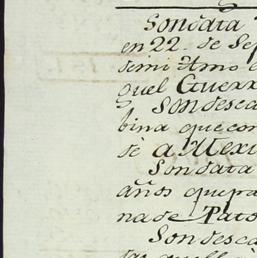 Son data
en 22. de Sep
de mi Amo
guel Guerr
Son desca
bina que con
sè a Mexi
Son data
años que pa
na de Pato
Son desca